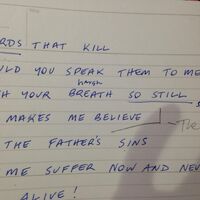 RDS THAT KILL
ULD YOU SPEAK THEM TO ME
harsh
H YOUR BREATH SO STILL
MAKES ME BELIEVE
THE FATHER'S SINS
ME SUFFER NOW AND NEV
ALIVE!